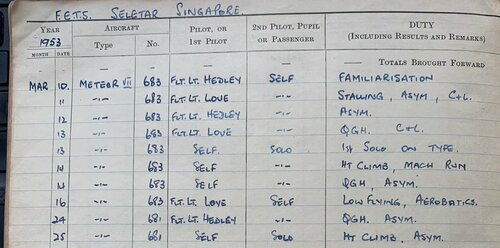 F.E.T.S. SELETAR SINGAPORE.
YEAR AIRCRAFT PILOT, OR 2ND PILOT, PUPIL DUTY
1953 Type No. 1ST PILOT OR PASSENGER (INCLUDING RESULTS AND REMARKS)
MONTH DATE
— — — — — — TOTALS BROUGHT FORWARD
MAR 10. METEOR VII 683 FLT. LT. HEDLEY SELF FAMILIARISATION
11 -"- 683 FLT. LT. LOVE -"- STALLING, ASYM, C+L.
12 -"- 683 FLT. LT. HEDLEY -"- ASYM.
13 -"- 683 FLT. LT. LOVE -"- QGH. C+L.
13 -"- 683 SELF. SOLO 1ST SOLO ON TYPE.
14 -"- 683 SELF -"- HT CLIMB, MACH RUN
14 -"- 683 SELF -"- QGH, ASYM.
16 -"- 683 FLT. LT. LOVE SELF LOW FLYING, AEROBATICS.
24 -"- 681 FLT. LT. HEDLEY -"- QGH. ASYM.
25 -"- 681 SELF SOLO HT CLIMB, ASYM.